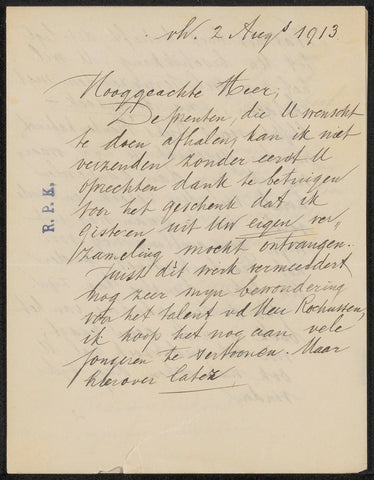 2 Augs 1913
Hooggeachte Heer,
De prenten, die U wenscht
te doen afhalen, kan ik niet
verzenden zonder eerst U
oprechten dank te betuigen
voor het geschenk dat ik
gisteren uit Uw eigen ver„
zameling mocht ontvangen.
Juist dit werk vermeerdert
nog zeer mijn bewondering
voor het talent vd Heer Rochussen,
ik hoop het nog aan vele
jongeren te vertoonen. Maar
hierover later
R. P. K.